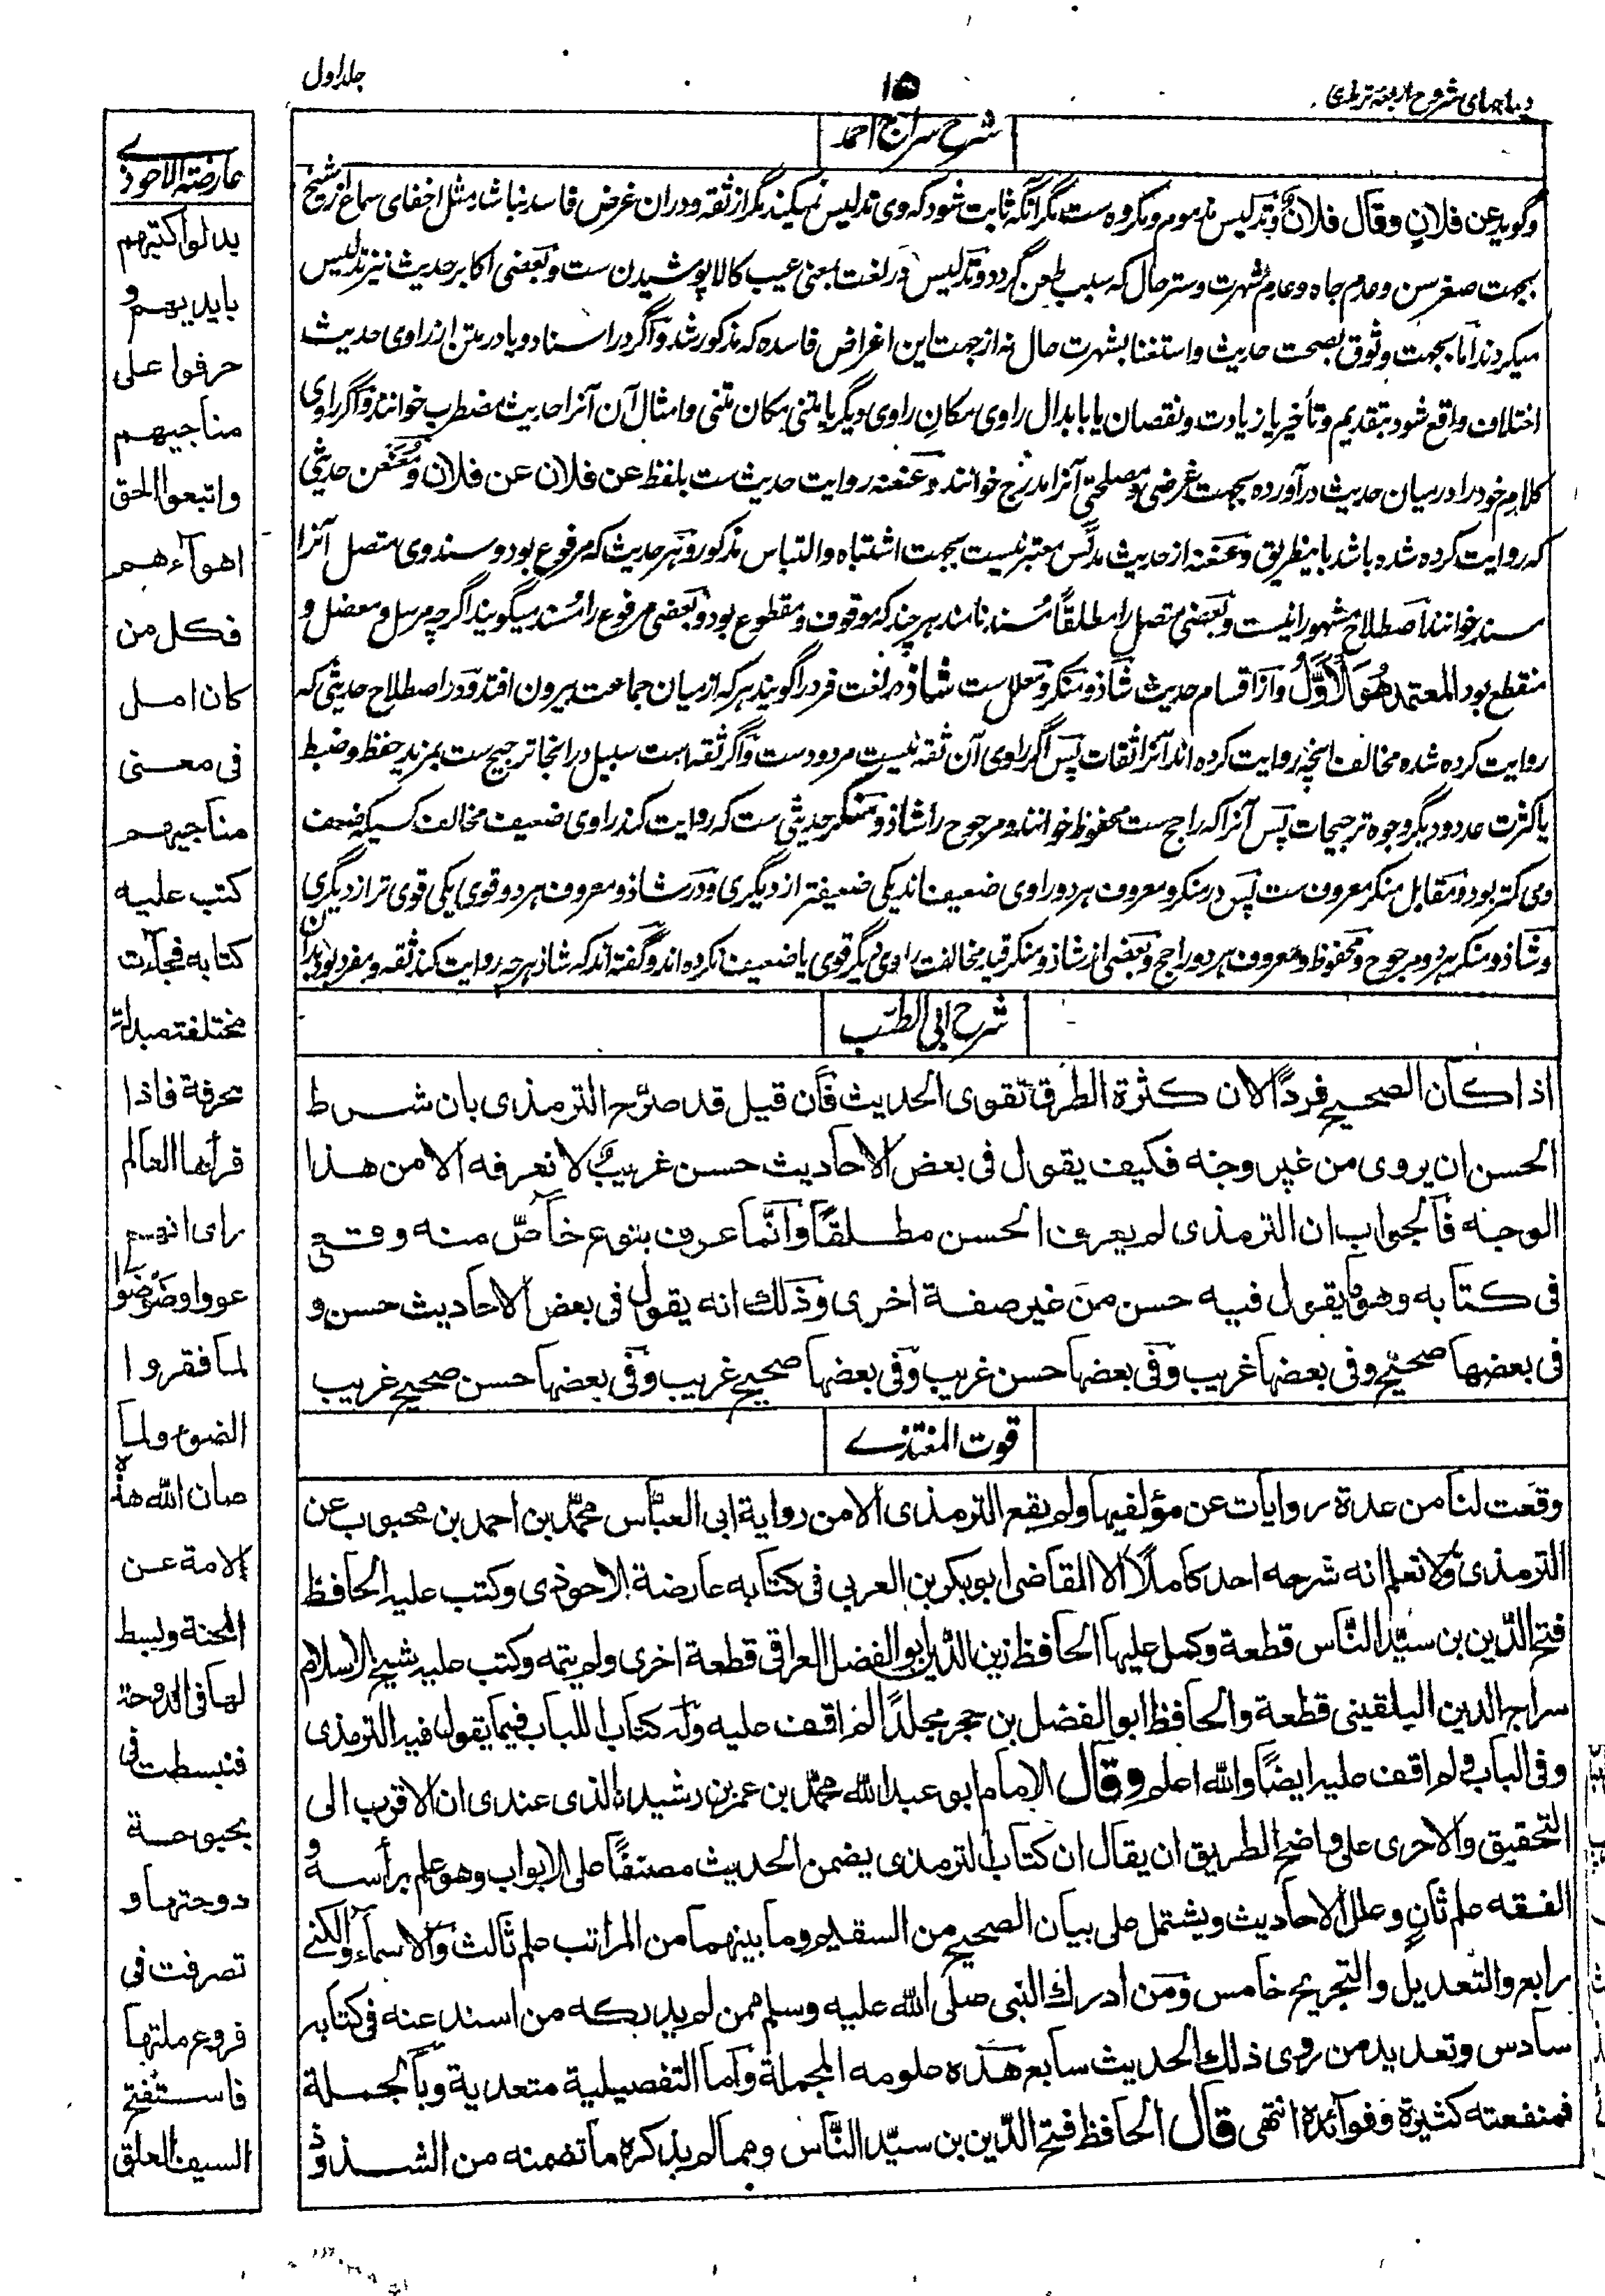 دیباچهای شروح اربعه ترمذی
۱۵
جلد اول
شرح سراج احمد
وگوید عن فلانٍ وقال فلانٌ وتدلیس مذموم ومکروه ست مگر آنکه ثابت شود که وی تدلیس نمیکند مگر از ثقه ودران غرض فاسد نباشد مثل اخفای سماع از شیخ
بجهت صغر سن وعدم جاه وعدم شهرت وستر حال که سبب طعن گردد وتدلیس در لغت بمعنی عیب کالا پوشیدن ست وبعضی اکابر حدیث نیز تدلیس
میکردند اما بجهت وثوق بصحت حدیث واستغنا بشهرت حال نه از جهت این اغراض فاسده که مذکور شد واگر در اسناد ویا در متن از راوی حدیث
اختلاف واقع شود بتقدیم وتأخیر یا زیادت ونقصان یا بابدال راوی مکانِ راوی دیگر یا متنی مکان متنی وامثال آن آنرا حدیث مضطرب خوانند واگر راوی
کلامِ خود را در میان حدیث در آورده بجهت غرضی ومصلحتی آنرا مدرج خوانند وعنعنه روایت حدیث ست بلفظ عن فلان عن فلان ومُعَنعَن حدیثی
که روایت کرده شده باشد باینطریق وعنعنه از حدیث مدلّس معتبر نیست بجهت اشتباه والتباس مذکور وهر حدیث که مرفوع بود وسند وی متصل آنرا
مسند خوانند اصطلاح مشهور اینست وبعضی متصل را مطلقًا مُسند نامند هر چند که موقوف ومقطوع بود وبعضی مرفوع را مُسند میگویند اگرچه مرسل ومعضل و
منقطع بود المعتمد هُوَ الْأَوَّلُ واز اقسام حدیث شاذ ومنکر ومعلل ست شاذ در لغت فرد را گویند هر که از میان جماعت بیرون افتد ودر اصطلاح حدیثی که
روایت کرده شده مخالف انچه روایت کرده اند آنرا ثقات پس اگر راوی آن ثقه نیست مردود ست واگر ثقه است سبیل در اینجا ترجیح ست بمزید حفظ وضبط
یا کثرت عدد ودیگر وجوه ترجیحات پس آنرا که راجح ست محفوظ خوانند ومرجوح را شاذ ومنکر حدیثی ست که روایت کند راوی ضعیف مخالف کسیکه ضعف
وی کمتر بود ومقابل منکر معروف ست پس در منکر ومعروف هر دو راوی ضعیف اند یکی ضعیفتر از دیگری ودر شاذ ومعروف هر دو قوی یکی قوی تر از دیگری
وشاذ ومنکر هر دو مرجوح ومحفوظ ومعروف هر دو راجح وبعضی از شاذ ومنکر قید مخالفت راوی دیگر قوی یا ضعیف نکرده اند وگفته اند که شاذ هرچه روایت کند ثقه ومفرد بود بدان
شرح ابی الطیب
اذا كان الصحيح فردًا لان كثرة الطرق تقوى الحديث فان قيل قد صرّح الترمذى بان شرط
الحسن ان يروى من غير وجه فكيف يقول فى بعض الاحاديث حسن غريبٌ لا نعرفه الا من هذا
الوجه فالجواب ان الترمذى لم يعرف الحسن مطلقًا وانّما عرف بنوع خاصّ منه وقع
فى كتابه وهو ما يقول فيه حسن من غير صفة اخرى وذلك انه يقول فى بعض الاحاديث حسن و
فى بعضها صحيح وفى بعضها غريب وفى بعضها حسن غريب وفى بعضها صحيح غريب وفى بعضها حسن صحيح غريب
قوت المغتذے
وقعت لنا من عدة روايات عن مؤلفيها ولم يقع الترمذى الا من رواية ابى العبّاس محمّد بن احمد بن محبوب عن
الترمذى ولا نعلم انه شرحه احد كاملًا الا القاضى ابو بكر بن العربى فى كتابه عارضة الاحوذى وكتب عليه الحافظ
فتح الدّين بن سيّد النّاس قطعة وكمل عليها الحافظ زين الدّين ابو الفضل العراقى قطعة اخرى ولم يتمه وكتب عليه شيخ الاسلام
سراج الدين البلقينى قطعة والحافظ ابو الفضل بن حجر مجلدًا لم اقف عليه وله كتاب اللباب فيما يقول فيه الترمذى
وفى الباب ولم اقف عليه ايضًا والله اعلم وقال الامام ابو عبد الله محمّد بن عمر بن رشيد الذى عندى ان الاقرب الى
التحقيق والاحرى على واضح الطريق ان يقال ان كتاب الترمذى يضمن الحديث مصنفًا على الابواب وهو علم برأسه و
الفقه علم ثانٍ وعلل الاحاديث ويشتمل على بيان الصحيح من السقيم وما بينهما من المراتب علم ثالث والاسماء والكنے
رابع والتعديل والتجريح خامس ومن ادرك النبى صلى الله عليه وسلم ممن لم يدركه من اسند عنه فى كتابه
سادس وتعديد من روى ذلك الحديث سابع هذه علومه المجملة واما التفصيلية متعدية وبالجملة
فمنفعته كثيرة وفوائده انتهى قال الحافظ فتح الدّين بن سيّد النّاس ومما لم يذكره ما تضمنه من الشذوذ و
عارضة الاحوذے
يدلوا كتبهم
بايديهم و
حرفوا على
مناجيهم
واتبعوا الحق
اهوآءهم
فكل من
كان امل
فى معنى
مناجيهم
كتب عليه
كتابه فجآءت
مختلفة مبدلة
محرفة فاذا
قرأها العالم
راى انهم
عووا وضوضوا
لما فقروا
الضوع ولما
صان الله هذه
الامة عن
المحنة وبسط
لها فى الدوحة
فنبسطت فى
بحبوحة
دوحتها و
تصرفت فى
فروع ملتها
فاستفتح
السيف العلق